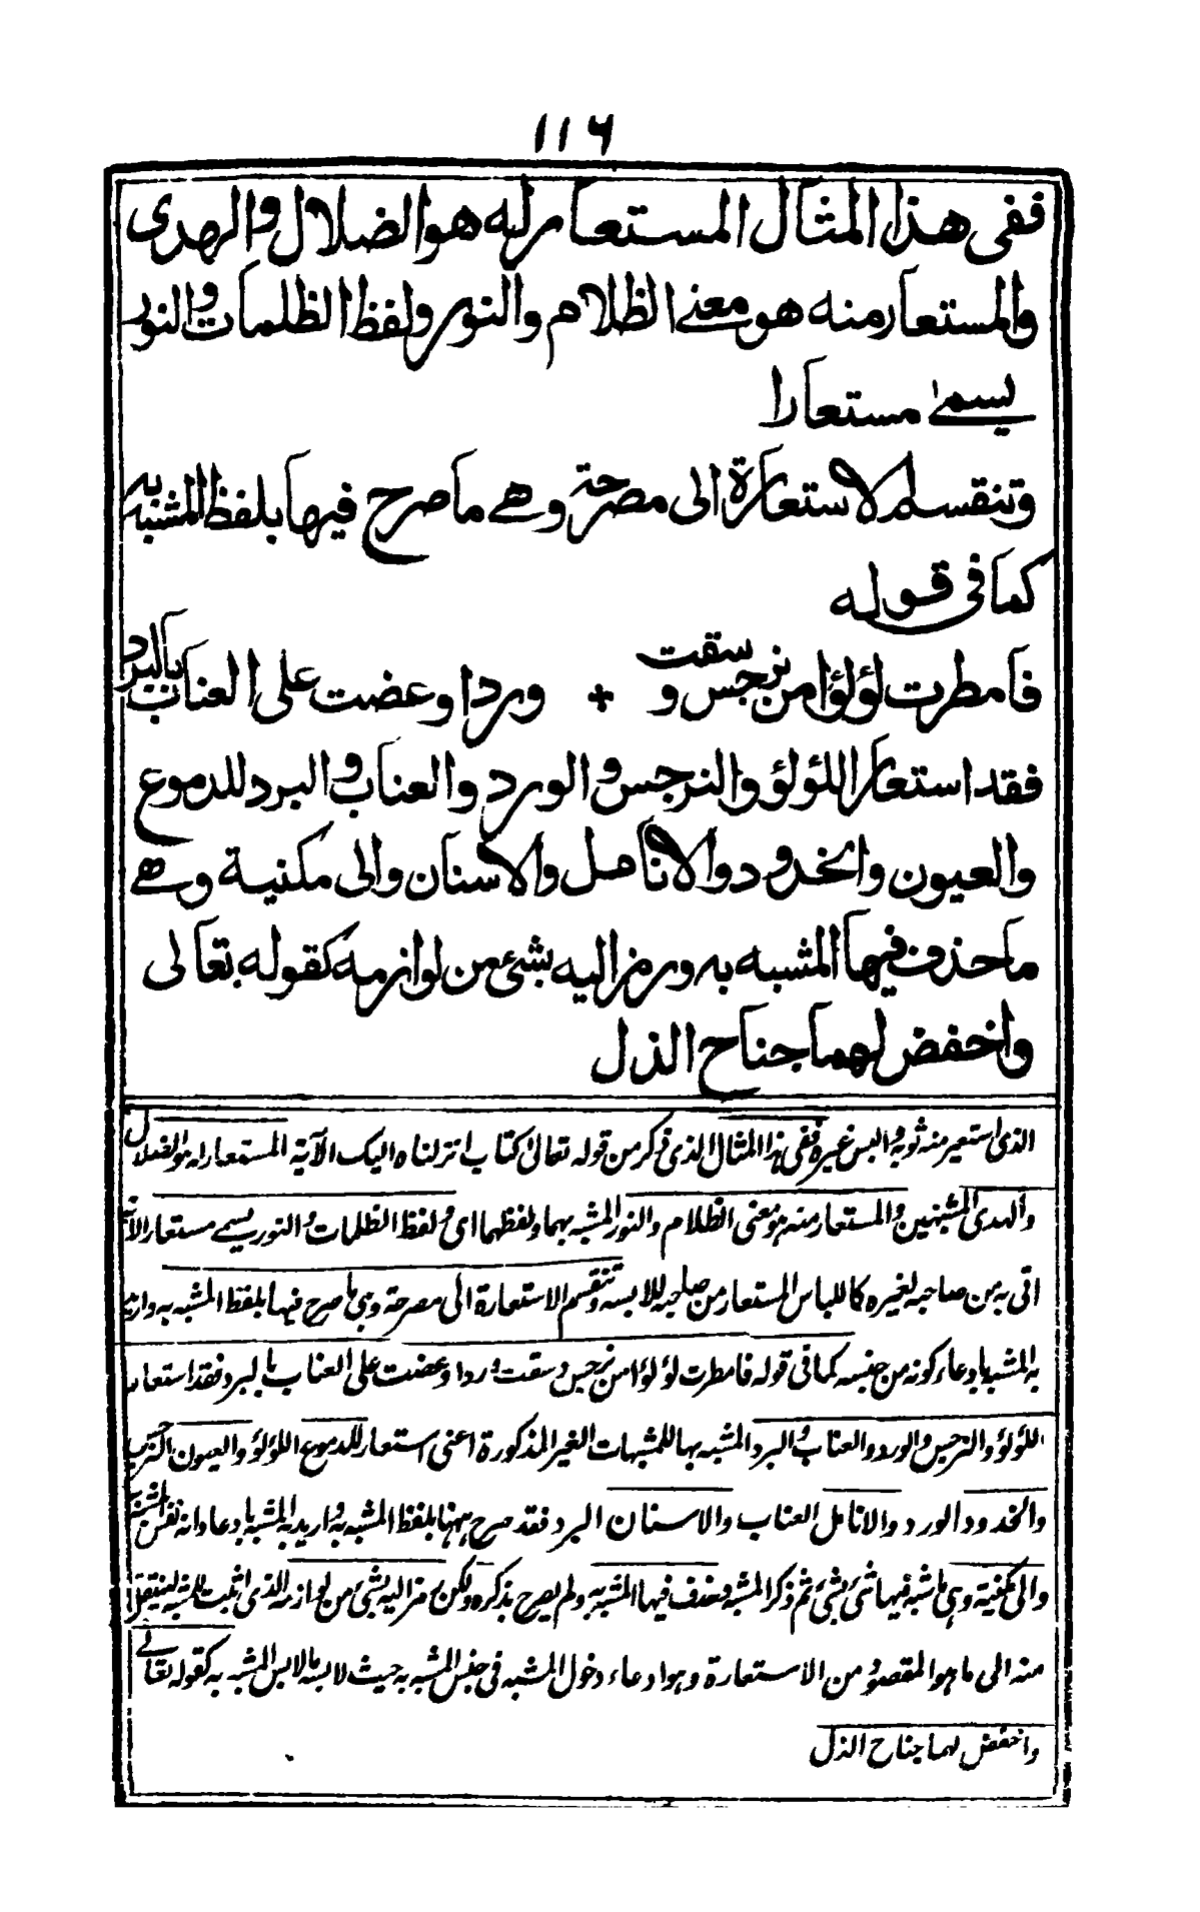 ١١٦
ففي هذا المثال المستعار له هو الضلال والهدى
والمستعار منه هو معنى الظلام والنور ولفظ الظلمات والنور
يسمى مستعارا
وتنقسم الاستعارة الى مصرحة وهي ما صرح فيها بلفظ المشبه به
كما في قوله
فامطرت لؤلؤا من نرجس وسقت + وردا وعضت على العناب بالبرد
فقد استعار اللؤلؤ والنرجس والورد والعناب والبرد للدموع
والعيون والخدود والانامل والاسنان والى مكنية وهي
ما حذف فيها المشبه به ورمز اليه بشئ من لوازمه كقوله تعالى
واخفض لهما جناح الذل
الذي استعير منه ثوبه والبس غيره ففي هذا المثال الذي ذكر من قوله تعالى كتاب انزلناه اليك الآية المستعار له هو الضلال
والهدى المشبهين والمستعار منه هو معنى الظلام والنور المشبه بهما ولفظهما اي ولفظ الظلمات والنور يسمى مستعارا لانه
اتى به من صاحبه لغيره كاللباس المستعار من صاحبه للابسه وتنقسم الاستعارة الى مصرحة وهي ما صرح فيها بلفظ المشبه به واريد
به المشبه بادعاء كونه من جنسه كما في قوله فامطرت لؤلؤا من نرجس وسقت وردا وعضت على العناب بالبرد فقد استعار
اللؤلؤ والنرجس والورد والعناب والبرد المشبه بها للمشبهات الغير المذكورة اعنى استعار للدموع اللؤلؤ والعيون النرجس
والخدود الورد والانامل العناب والاسنان البرد فقد صرح ههنا بلفظ المشبه به واريد به المشبه بادعاء انه نفس المشبه به
والى مكنية وهي ما شبه فيها شئ بشئ ثم ذكر المشبه وحذف فيها المشبه به ولم يصرح بذكره ولكن رمز اليه بشئ من لوازمه الذي اثبت للمشبه لينتقل
منه الى ما هو المقصود من الاستعارة وهو ادعاء دخول المشبه في جنس المشبه به حيث لابسه ما لابس المشبه به كقوله تعالى
واخفض لهما جناح الذل